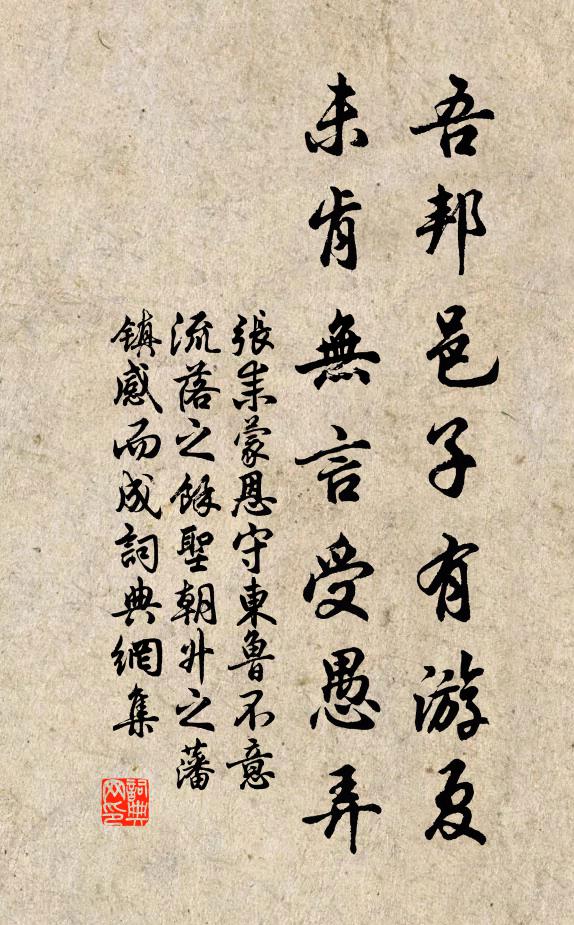 吾邦邑子有游夏
未肯無言受愚弄
張耒蒙恩守東魯不意
流落之餘聖朝升之藩
鎮感而成詞典網集
詞典网印